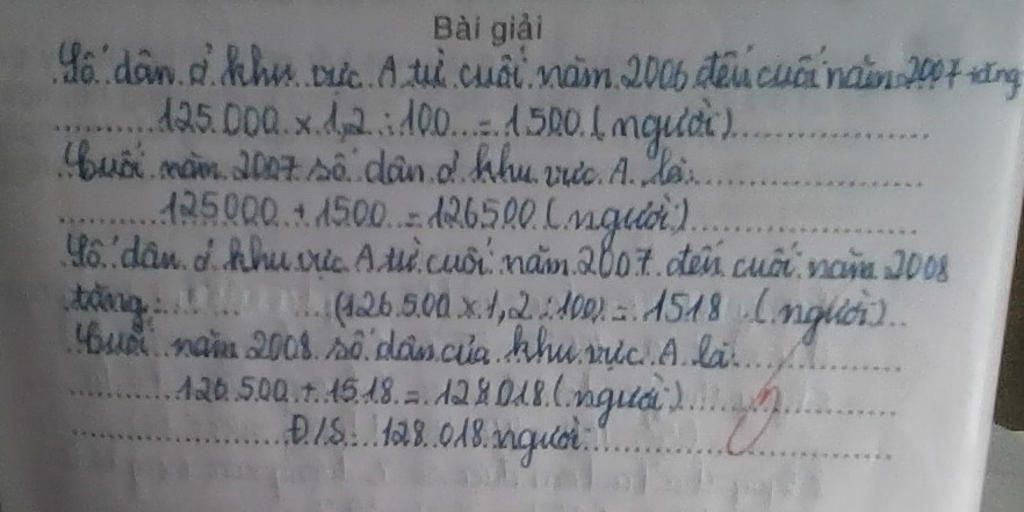 Bài giải
Số dân ở khu vực A từ cuối năm 2006 đến cuối năm 2007 tăng
125.000 x 1,2 : 100 = 1500 (người)
Cuối năm 2007 số dân ở khu vực A là:
125000 + 1500 = 126500 (người)
Số dân ở khu vực A từ cuối năm 2007 đến cuối năm 2008
tăng: (126.500 x 1,2 : 100) = 1518 (người)
Cuối năm 2008 số dân của khu vực A là:
126.500 + 1518 = 128.018 (người)
Đ/S: 128.018 người